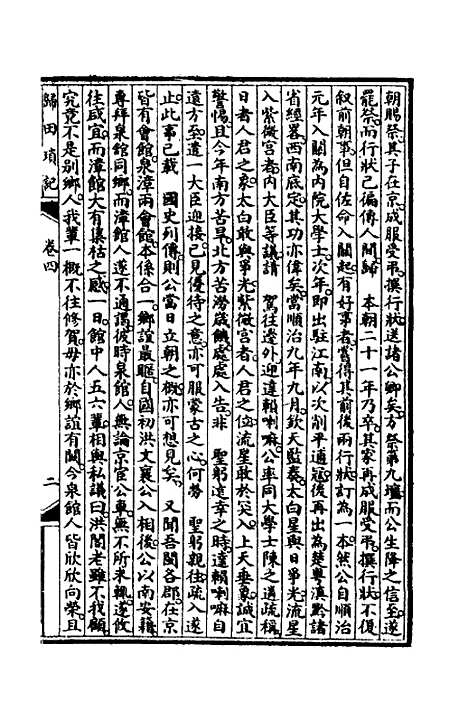 朝賜祭其子在京成服受弔撰行狀送諸公卿矣方祭第九壇而公生降之信至遂
罷祭而行狀已偏傳人間歸　本朝二十一年乃卒其家再成服受弔撰行狀不復
叙前朝事但自佐命入關起有好事者嘗得其前後兩行狀訂為一本然公自順治
元年入關為內院大學士次年即出駐江南以次削平通寇後再出為楚粵滇黔諸
省經畧西南底定其功亦偉矣嘗順治九年九月欽天監奏太白星與日爭光流星
入紫微宮者內大臣等議請　駕往邊外迎達賴喇嘛公率同大學士陳之遴疏稱
日者人君之象太白敢與爭光紫微宮者人君之位流星敢於突入上天垂象誠宜
警惕且今年南方苦旱北方苦澇歲饑處處入告非　聖躬遠幸之時達賴喇嘛自
遠方至遣一大臣迎接已見優待之意亦可服蒙古之心何勞　聖躬親往疏入遂
止此事已載　國史列傳則公當日立朝之概亦可想見矣　又聞吾閩各郡在京
皆有會館泉漳兩會館本係合一鄉誼最暱自國初洪文襄公入相後公以南安籍
專拜泉館同鄉而漳館人遂不通謁彼時泉館人無論京宦公車無不所求輒遂攸
往咸宜而漳館大有集枯之感一日館中人五六輩相與私議曰洪閣老雖不我顧
究竟不是別鄉人我輩一概不往修賀毋亦於鄉誼有闕今泉館人皆欣欣向榮且
歸田瑣記
卷四
二